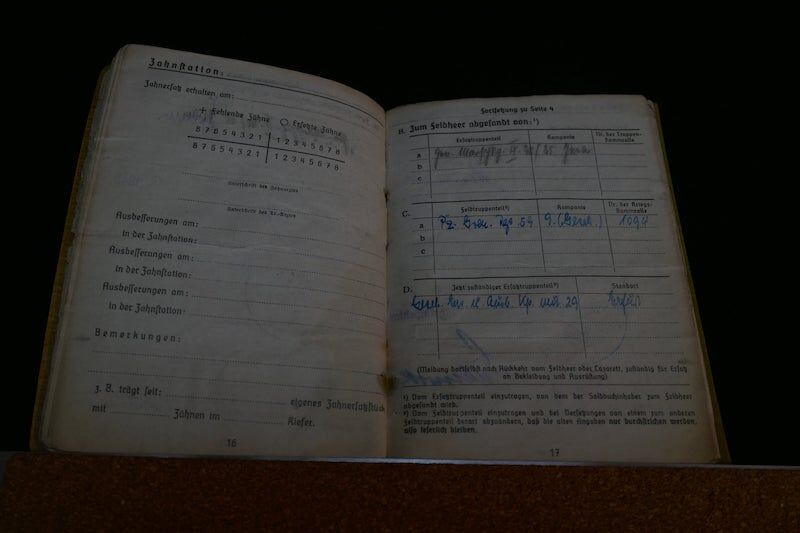 Zahnstation:
Zahnersatz erhalten am:
+ Fehlende Zähne ○ Ersetzte Zähne
8 7 6 5 4 3 2 1 1 2 3 4 5 6 7 8
8 7 6 5 4 3 2 1 1 2 3 4 5 6 7 8
Unterschrift des Zahnarztes
Ausbesserungen am:
in der Zahnstation:
Ausbesserungen am:
in der Zahnstation:
Ausbesserungen am:
in der Zahnstation:
Bemerkungen:
z. B. trägt seit: eigenes Zahnersatzstück
mit Zähnen im Kiefer.
16
Fortsetzung zu Seite 4
B. Zum Feldheer abgesandt von:¹)
Ersatztruppenteil Kompanie Nr. der Truppen-
stammrolle
a
b
c
C. Feldtruppenteil²) Kompanie Nr. der Kriegs-
stammrolle
a Pz. Gren. Rgt. 59 9. (Gesch.) 1094
b
c
D. Jetzt zuständiger Ersatztruppenteil²) Standort
Ers. u. Ausb. Kp. mot. 29 Erfurt
(Meldung dortselbst nach Rückkehr vom Feldheer oder Lazarett, zuständig für Ersatz
an Bekleidung und Ausrüstung)
¹) Vom Ersatztruppenteil einzutragen, von dem der Soldbuchinhaber zum Feldheer
abgesandt wird.
²) Vom Feldtruppenteil einzutragen und bei Versetzungen von einem zum anderen
Feldtruppenteil derart abzuändern, daß die alten Angaben nur durchstrichen werden,
also leserlich bleiben.
17